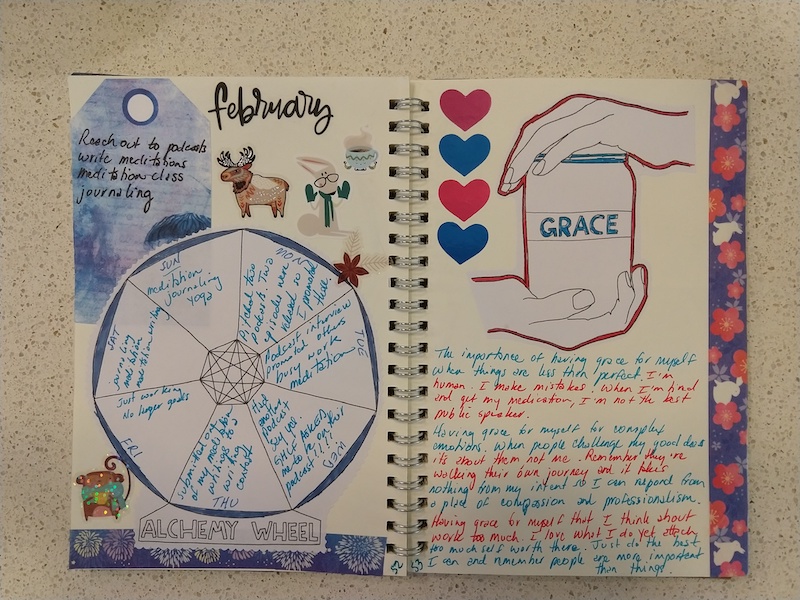 february
Reach out to podcasts
write meditations
meditation class
journaling
SUN
meditation
journaling
yoga
MON
Pitched two
podcasts Two
episodes were
released so
I promoted
these
TUE
Podcast interview
promoted others
busy work
meditation
WED
Had
another
podcast
say yes.
SHE ASKED
me to
be on their
podcast
THU
submitted one
of my meditation
writings to a
writing
contest
FRI
Just working
No larger goals
SAT
journaling
meditation
meditation writing
ALCHEMY WHEEL
52
GRACE
The importance of having grace for myself
when things are less than perfect. I'm
human. I make mistakes. When I'm tired
and get my medication, I'm not the best
public speaker.
Having grace for myself for complex
emotions. When people challenge my good deeds
it's about them not me. Remember they're
walking their own journey and it takes
nothing from my intent so I can respond from
a place of compassion and professionalism.
Having grace for myself that I think about
work too much. I love what I do yet attach
too much self worth there. Just do the best
I can and remember people are more important
than things.
53